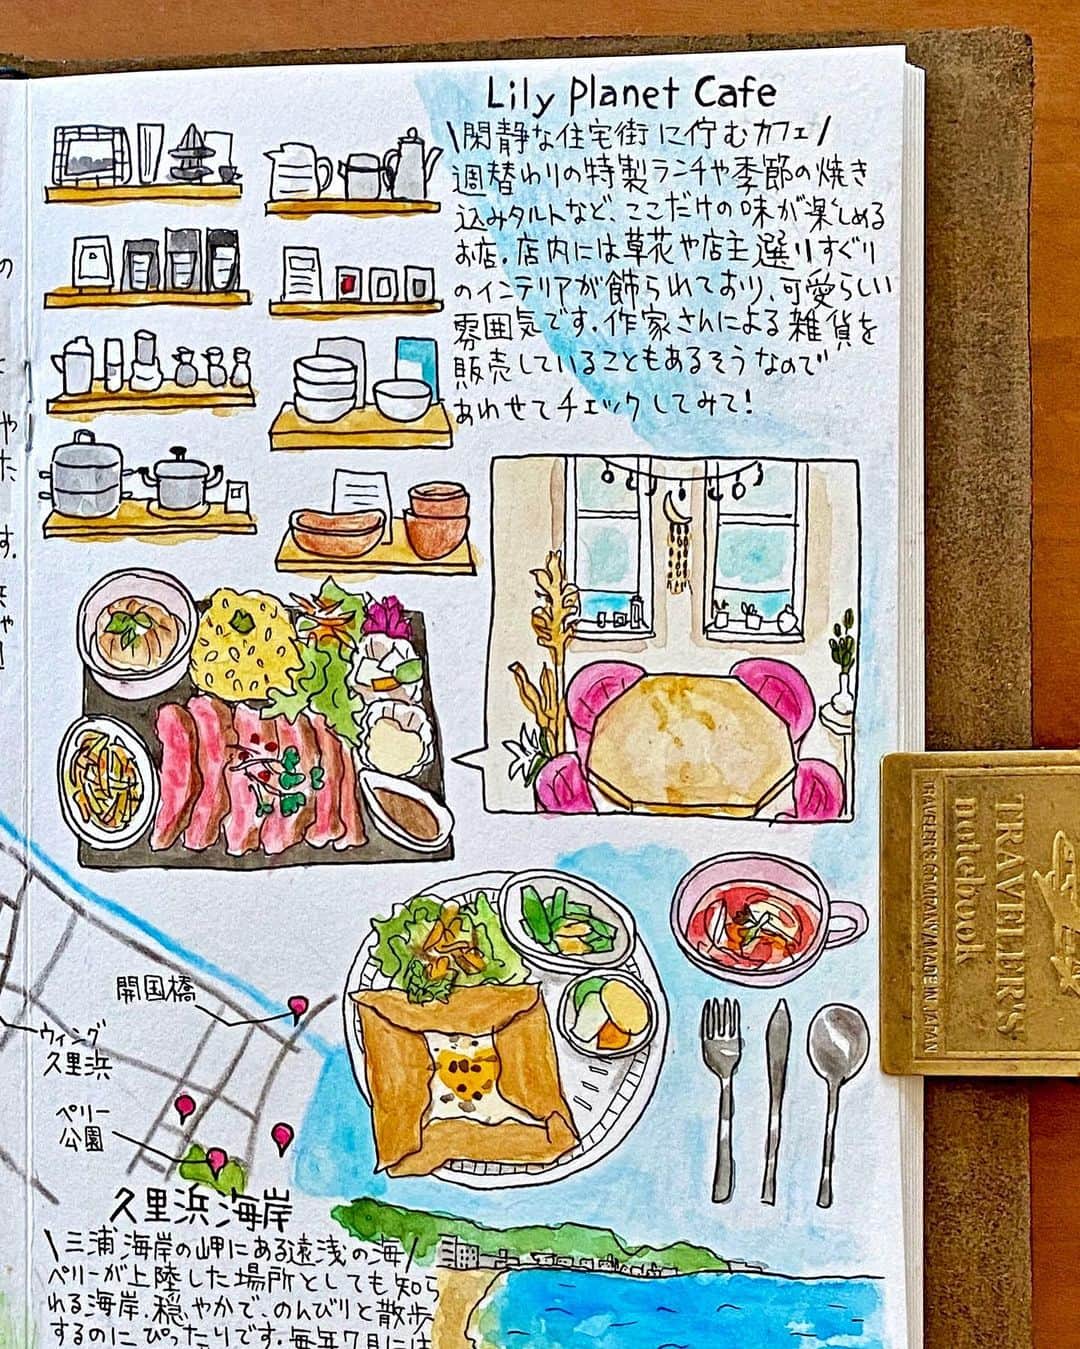 Lily Planet Cafe
\閑静な住宅街に佇むカフェ/
週替わりの特製ランチや季節の焼き
込みタルトなど、ここだけの味が楽しめる
お店。店内には草花や店主選りすぐり
のインテリアが飾られており、可愛らしい
雰囲気です。作家さんによる雑貨を
販売していることもあるそうなので
あわせてチェックしてみて!
開国橋
ウィング
久里浜
ペリー
公園
久里浜海岸
\三浦海岸の岬にある遠浅の海/
ペリーが上陸した場所としても知ら
れる海岸。穏やかで、のんびりと散歩
するのにぴったりです。毎年7月には
TRAVELER'S
notebook
TRAVELER'S COMPANY MADE IN JAPAN